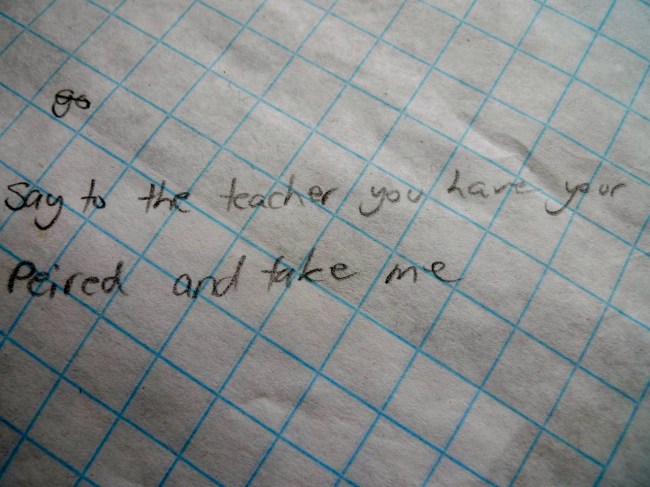 go
Say to the teacher you have your
Peired and take me